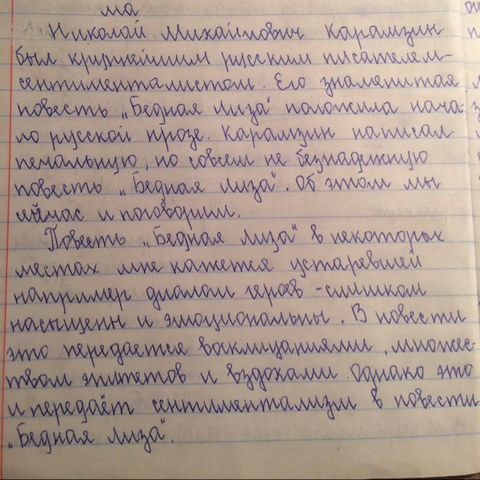 ма
Николай Михайлович Карамзин
был крупнейшим русским писателем-
сентименталистом. Его знаменитая
повесть „Бедная Лиза" положила нача
ло русской прозе. Карамзин написал
печальную, но совсем не безнадежную
повесть „Бедная Лиза". Об этом мы
сейчас и поговорим.
Повесть „Бедная Лиза" в некоторых
местах мне кажется устаревшей
например диалоги героев - слишком
насыщены и эмоциональны. В повести
это передается восклицаниями, множес-
твом эпитетов и вздохами. Однако это
и передаёт сентиментализм в повести
„Бедная Лиза".